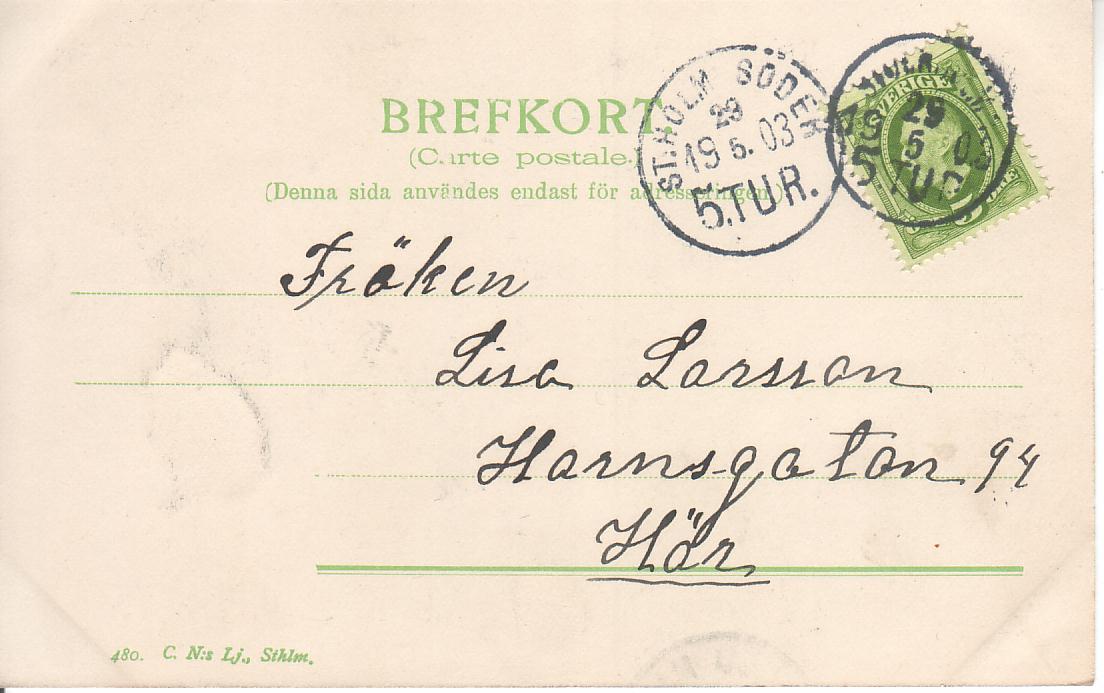 BREFKORT.
(Carte postale.)
(Denna sida användes endast för adresseringen.)
ST.HOLM SÖDER
29
19 5. 03
5.TUR.
SVERIGE
29
19 5 03
5 TUR
ÖRE
Fröken
Lisa Larsson
Hornsgatan 94
Här
480. C. N:s Lj., Sthlm.